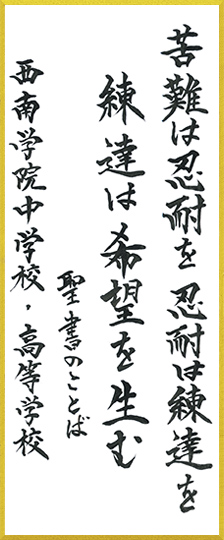 苦難は忍耐を 忍耐は練達を
練達は希望を生む
聖書のことば
西南学院中学校・高等学校